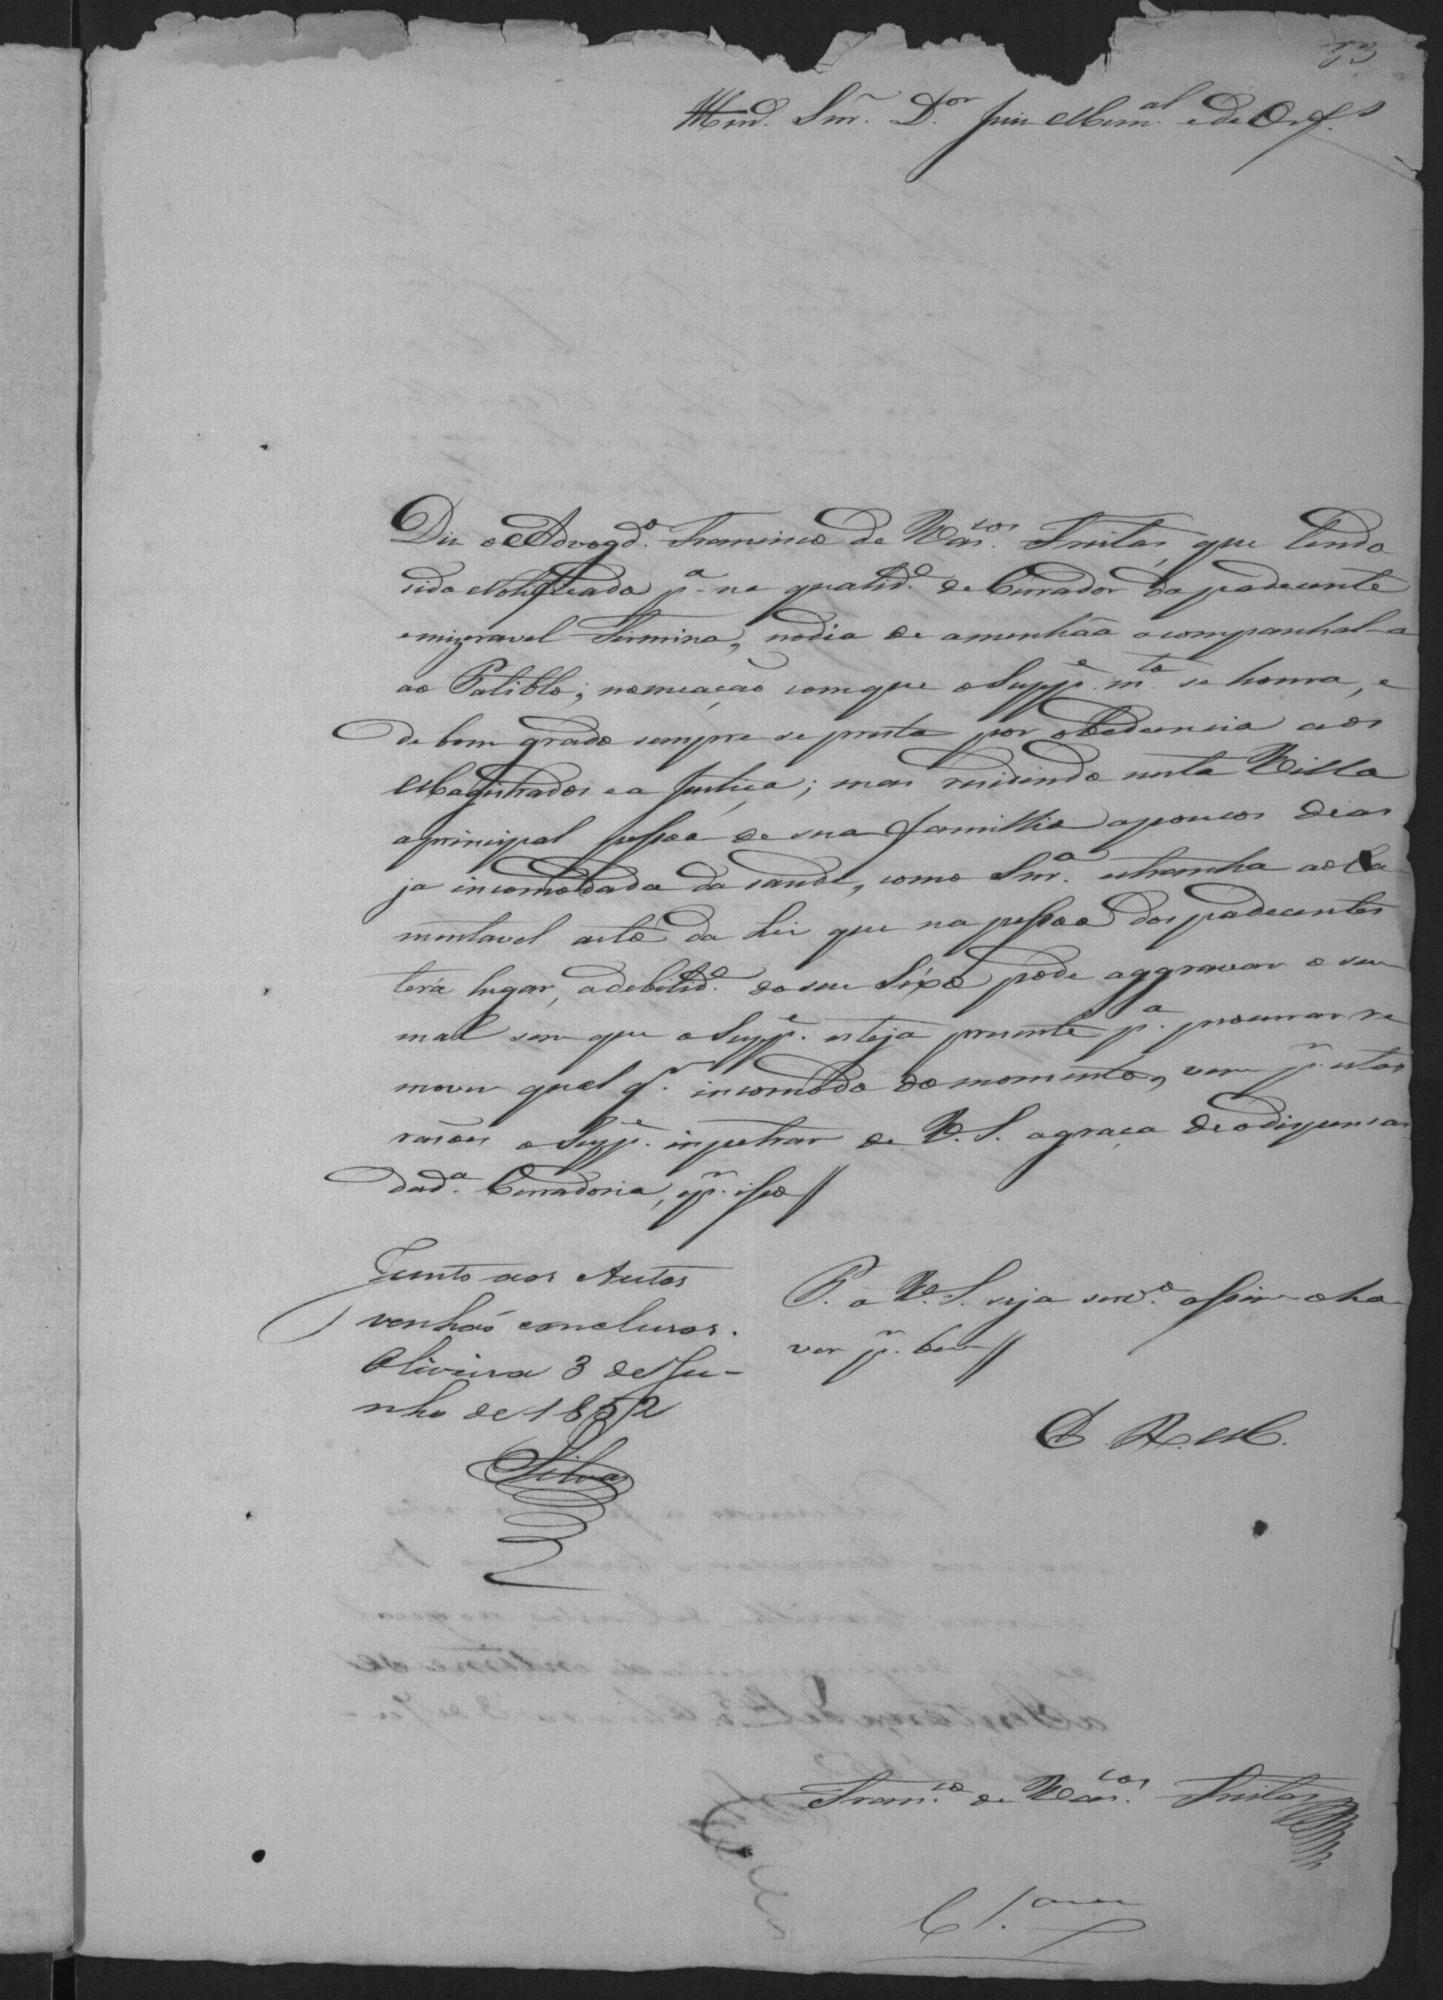 53
Illmo. Snr. Dor. Juiz Mum.al e de Orf.s
Diz o Advogdo. Francisco de Vas.cos Freitas, que tendo
sido Notificado pa. na qualide. de Curador da padecente
e mizeravel Firmina, no dia de amenhãa acompanhal-a
ao Patiblo; nomeação com que o Suppe. mto. se honra, e
de bom grado sempre se presta por obediencia aos
Magistrados e a Justiça; mas residindo nesta Villa
a principal pessoa de sua familia a poucos dias
ja incomodada da saude, como Snra. estranha ao La
mentavel acto da Lei que na pessoa dos padecentes
terá lugar, a debilide. do seu Sexo pode aggravar o seu
mal sem que o Suppe. esteja presente pa. procurar re
mover qual qr. incomodo do momento, vem pr. estas
rasões o Suppe. impetrar de V. S. a graça de o dispensar
da da. Curadoria, e pr. isso //
P. a V. S. seja servo. assim o ha
ver pr. bem //
E. R. M.
Junto aos Autos
venhão conclusos.
Oliveira 3 de Ju-
nho de 1852
Silva
Fran.co de Vas.cos Freitas